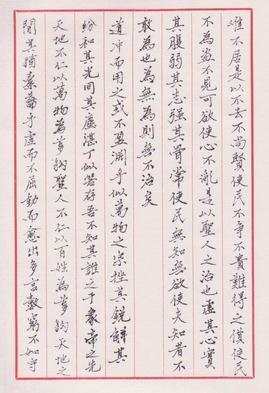 唯不居是以不去不尚賢使民不争不貴難得之貨使民
不為盜不見可欲使心不亂是以聖人之治也虛其心實
其腹弱其志強其骨常使民無知無欲使夫知者不
敢為也為無為則無不治矣
道冲而用之或不盈渊乎似萬物之宗挫其銳解其
紛和其光同其塵湛兮似若存吾不知其誰之子象帝之先
天地不仁以萬物為芻狗聖人不仁以百姓為芻狗天地之
間其猶橐籥乎虛而不屈動而愈出多言數窮不如守